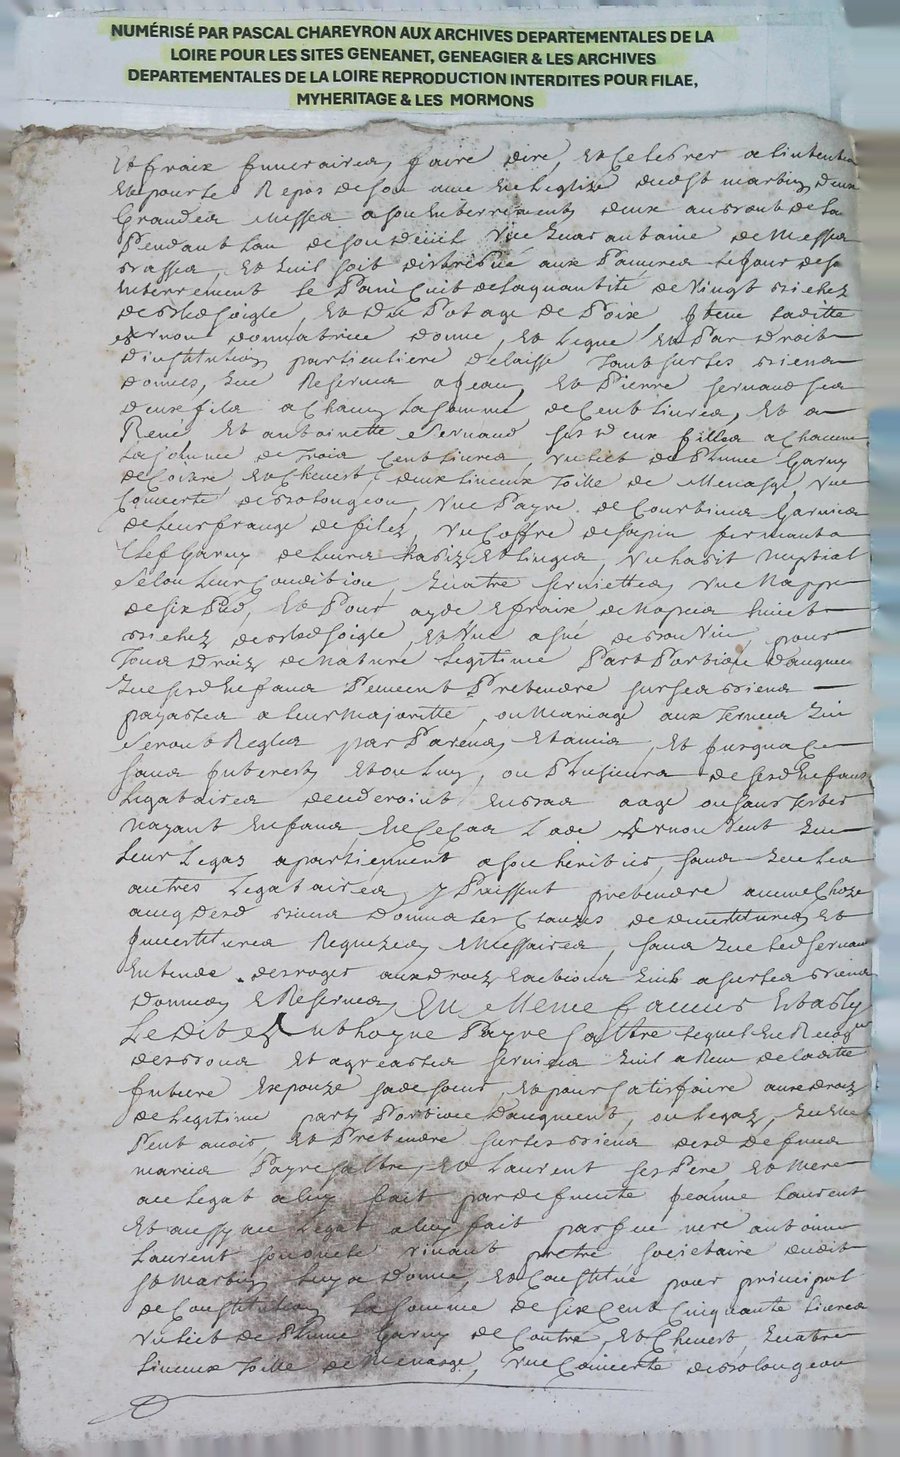 NUMÉRISÉ PAR PASCAL CHAREYRON AUX ARCHIVES DEPARTEMENTALES DE LA
LOIRE POUR LES SITES GENEANET, GENEAGIER & LES ARCHIVES
DEPARTEMENTALES DE LA LOIRE REPRODUCTION INTERDITES POUR FILAE,
MYHERITAGE & LES MORMONS
Et fraix funeraires, faire dire, et Celebrer a lintention
Et pour le Repos de son ame En leglize dud st martin, deux
Grandes Messes a son Enterrement, deux au bout de lan
Pendant lan de son deuil Une quarantaine de Messes
basses, Et quil soit distribué aux Pauvres le jour de so
Enterrement le Pain Cuit de la quantité de Vingt bichetz
de bled soigle, Et du Potage de Poix Item laditte
donnatrice donne, Et legue Et Par droit
dinstitution particuliere delaisse tant sur les biens
donnés, que Reserves a Jean, Et Pierre fernaud ses
deux fils a Chacun la somme de Cent livres, Et a
René Et antoinette fernaud ses deux filles a Chacune
la somme de Trois Cent livres, Un lict de Plume Garny
de Coitre Et Chevert, deux linceux Toille de Menage, Une
Couverte de bolongeon, Une Payre de Courtines Garnies
de leur frange de filet, Un Coffre de sapin fermant a
Clef Garny de leurs habitz Et linges, Un habit Nuptial
selon leur Condition, quatre serviettes, Une Nappe
de six Pied, Et Pour ayde Et fraix de Nopces huict
bichetz de bled soigle, Et Une asné de bon Vin pour
Tous Droitz de Nature legitime Part Portion daugment
que sesd Enfans Peuvent Pretendre sur ses biens
payables a leur Majorité, ou Mariage aux Termes qui
seront Reglés par Parens, Et amis, Et jusqua Ce
sans Interest, Et ou luy, ou Plusieurs de sesd Enfans
legataires decederoint En bas aage ou sans tester
Nayant Enfans, En Ce Cas Veut que
leur legaz apartiennent a son heritier, sans que les
autres legataires y Puissent pretendre aucune Choze
auqd biens donnés les Clauzes de devestitures Et
Investitures Requizes, Necessaires, sans que led fernaud
Entende desroger aux droitz Et actions quil a sur les biens
donnés, Et Reserves, En Meme faveur Et a Esté
Le dit Anthoyne Payre sabtre lequel En Recog
des bons Et agreables services quil a Reçu de ladte
future Expouze sa de soeur, Et pour satisfaire aux droitz
de legitime part, Portion daugment, ou legaz, quelle
Peut avoir, Et Pretendre sur les biens desd defunts
mariés Payre sabtre, Et Laurent ses Pere Et Mere
au legat a luy fait par defunte Jeanne Laurent
Et aussy au legat a luy fait par feu mre antoine
Laurent son oncle Vivant pretre societaire dudit
st Martin, luy a donné, Et Constitué pour principal
de Constitution la somme de six Cent Cinquante livres
Un lict de Plume Garny de Coutre, Et Chevert, quatre
linceux toille de Menage, Une Couverte de bolongeon